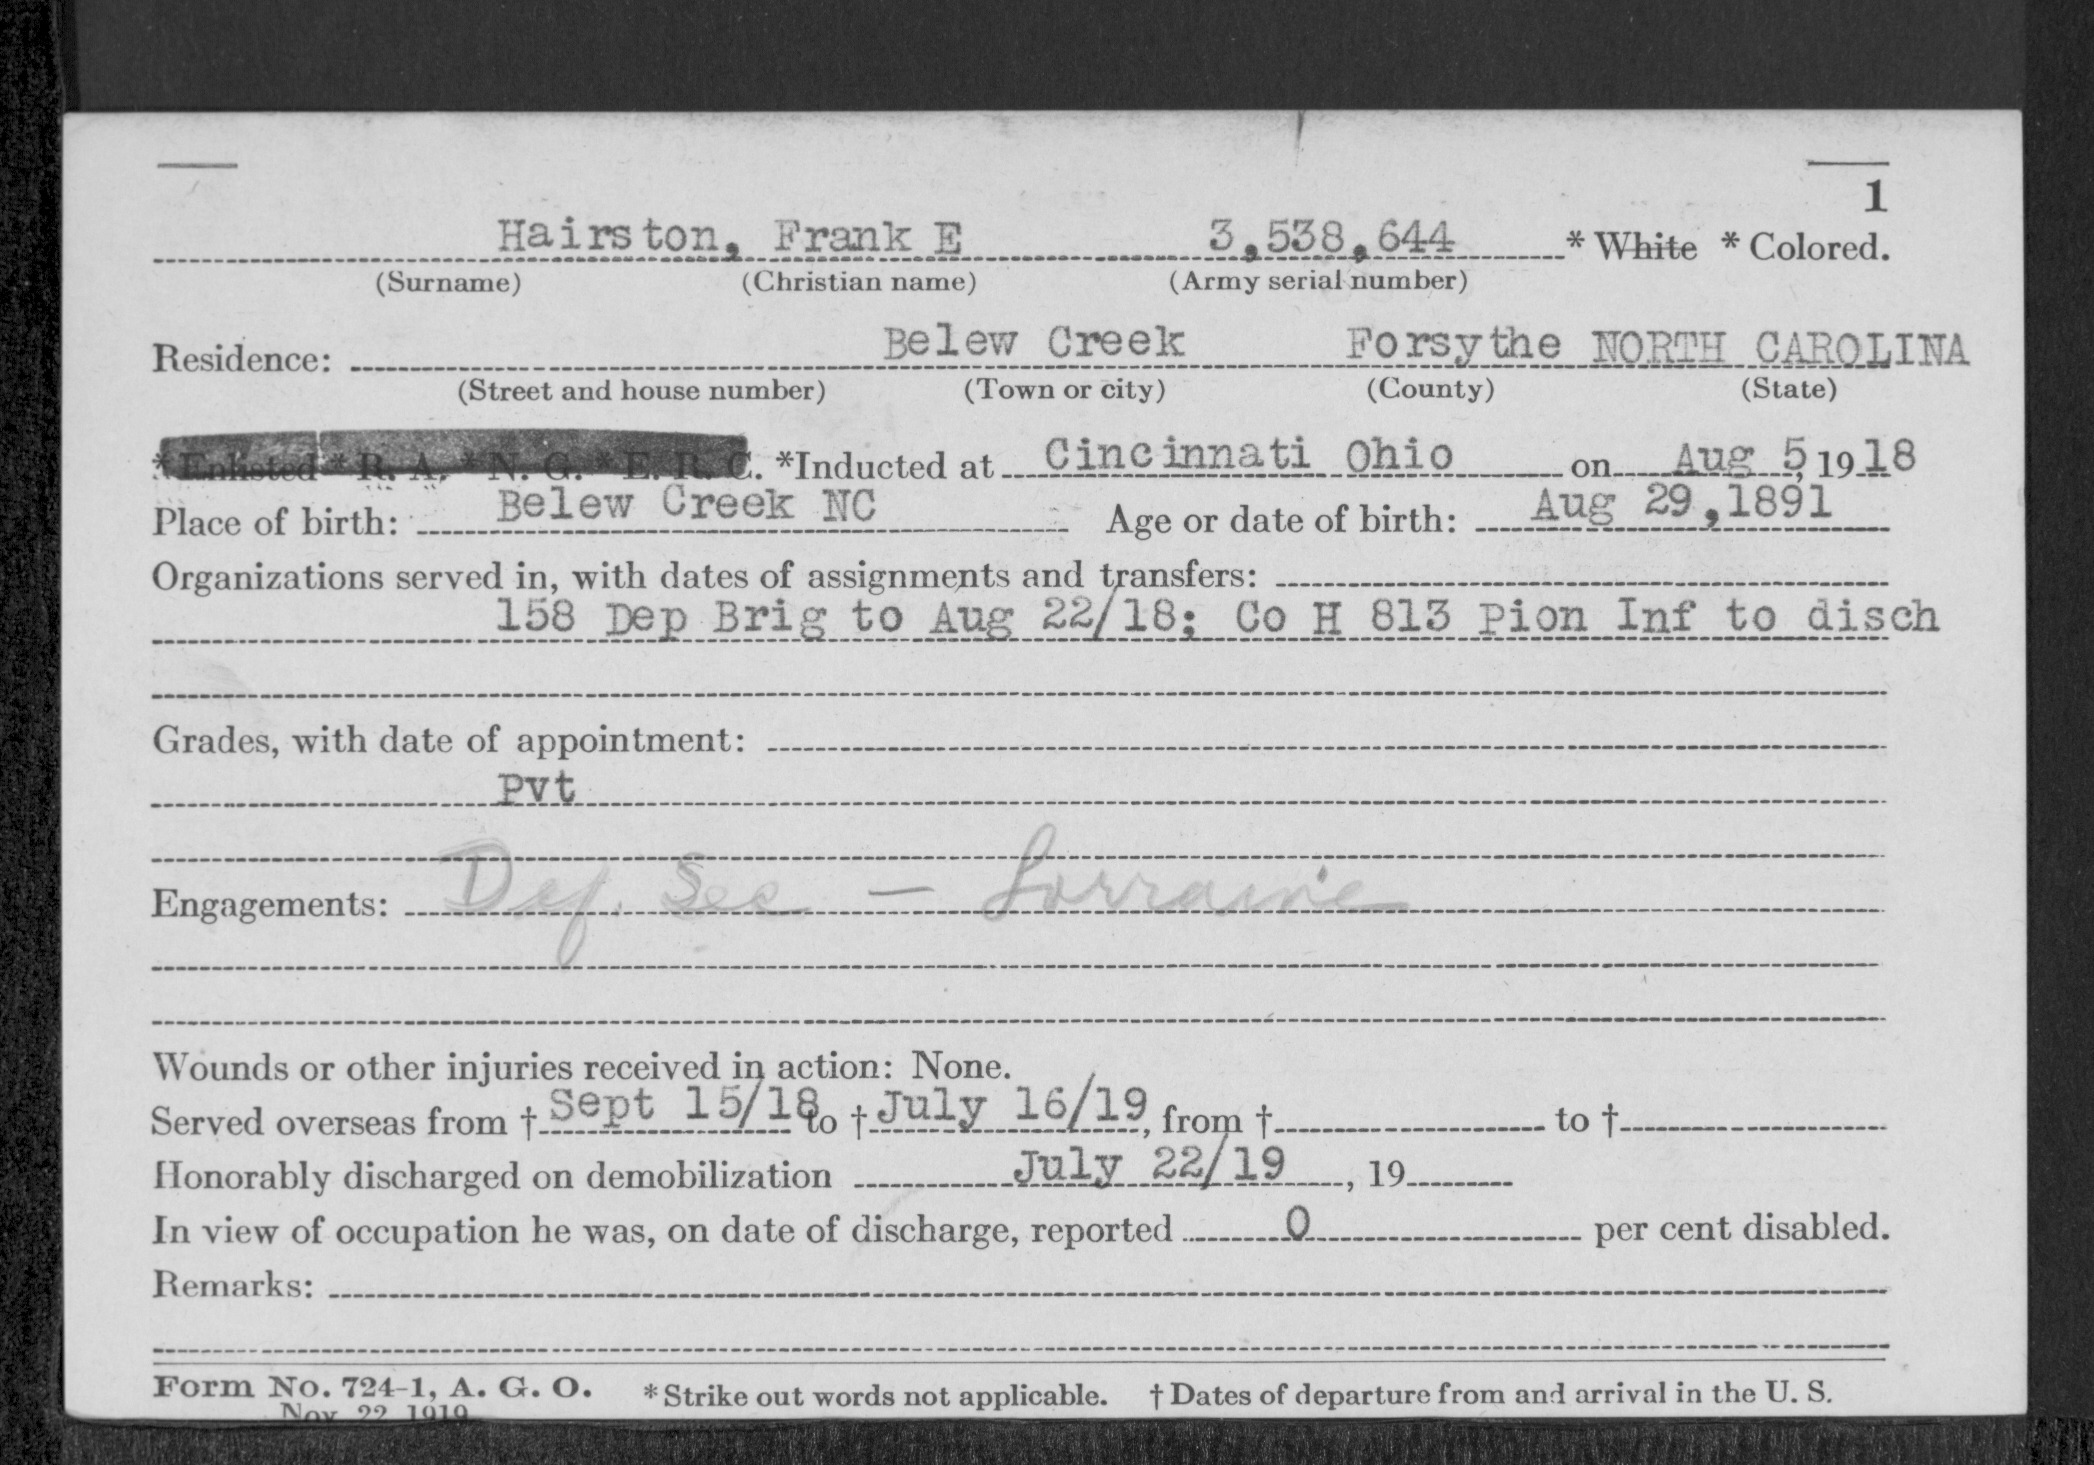 1
Hairston, Frank E 3,538,644 * White * Colored.
(Surname) (Christian name) (Army serial number)
Residence: Belew Creek Forsythe NORTH CAROLINA
(Street and house number) (Town or city) (County) (State)
*Enlisted *R. A. *N. G. *E. R. C. *Inducted at Cincinnati Ohio on Aug 5, 1918
Place of birth: Belew Creek NC Age or date of birth: Aug 29,1891
Organizations served in, with dates of assignments and transfers:
158 Dep Brig to Aug 22/18; Co H 813 Pion Inf to disch
Grades, with date of appointment:
Pvt
Engagements: Def. Sec – Lorraine
Wounds or other injuries received in action: None.
Served overseas from † Sept 15/18 to † July 16/19, from † to †
Honorably discharged on demobilization July 22/19, 19
In view of occupation he was, on date of discharge, reported 0 per cent disabled.
Remarks:
Form No. 724-1, A. G. O. *Strike out words not applicable. † Dates of departure from and arrival in the U. S.
Nov. 22, 1919